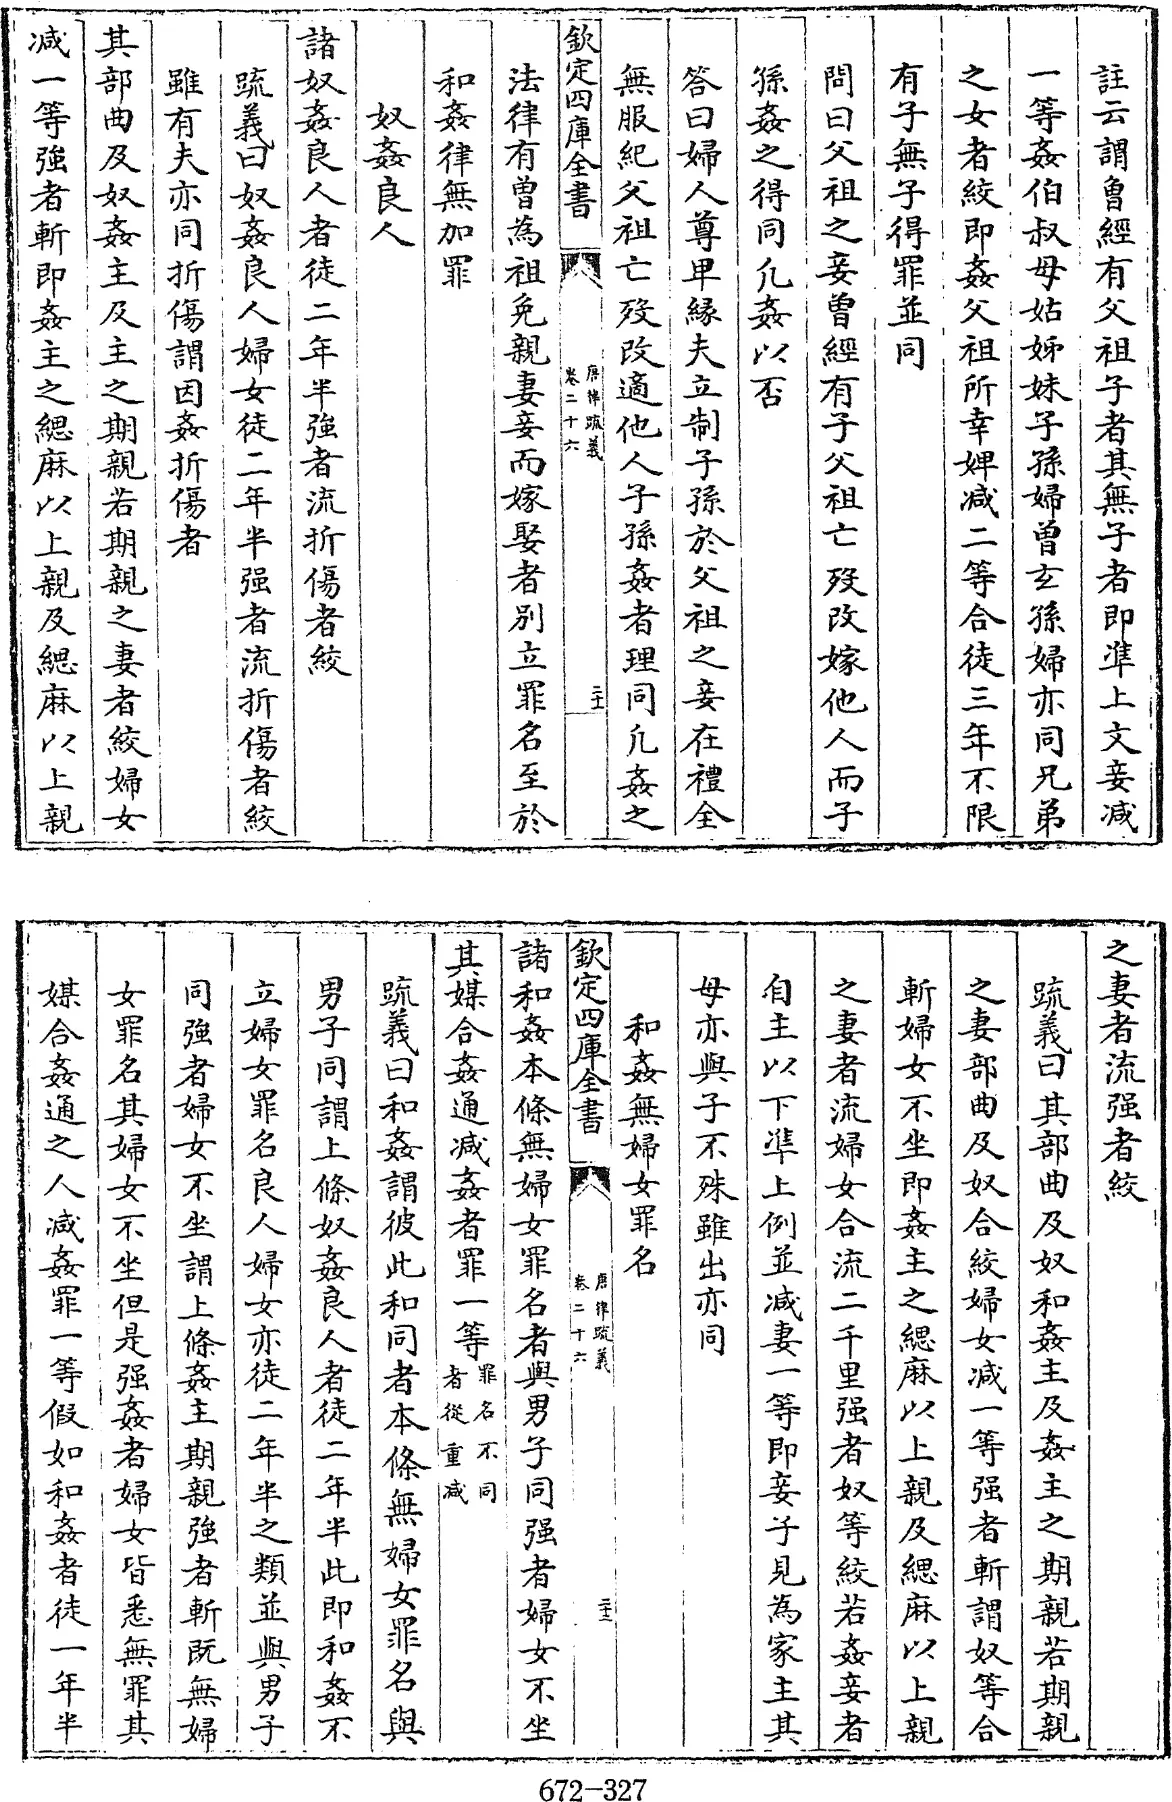 註云謂曾經有父祖子者其無子者即準上文妾減
一等姦伯叔母姑姊妹子孫婦曾玄孫婦亦同兄弟
之女者絞即姦父祖所幸婢減二等合徒三年不限
有子無子得罪並同
問曰父祖之妾曾經有子父祖亡歿改嫁他人而子
孫姦之得同凡姦以否
答曰婦人尊卑緣夫立制子孫於父祖之妾在禮全
無服紀父祖亡歿改適他人子孫姦者理同凡姦之
欽定四庫全書
唐律疏義
卷二十六
二十一
法律有曾為祖免親妻妾而嫁娶者別立罪名至於
和姦律無加罪
奴姦良人
諸奴姦良人者徒二年半強者流折傷者絞
疏義曰奴姦良人婦女徒二年半强者流折傷者絞
雖有夫亦同折傷謂因姦折傷者
其部曲及奴姦主及主之期親若期親之妻者絞婦女
減一等強者斬即姦主之緦麻以上親及緦麻以上親
之妻者流强者絞
疏義曰其部曲及奴和姦主及姦主之期親若期親
之妻部曲及奴合絞婦女減一等强者斬謂奴等合
斬婦女不坐即姦主之緦麻以上親及緦麻以上親
之妻者流婦女合流二千里强者奴等絞若姦妾者
自主以下準上例並減妻一等即妾子見為家主其
母亦與子不殊雖出亦同
和姦無婦女罪名
欽定四庫全書
唐律疏義
卷二十六
二十二
諸和姦本條無婦女罪名者與男子同强者婦女不坐
其媒合姦通減姦者罪一等罪名不同者從重減
疏義曰和姦謂彼此和同者本條無婦女罪名與
男子同謂上條奴姦良人者徒二年半此即和姦不
立婦女罪名良人婦女亦徒二年半之類並與男子
同強者婦女不坐謂上條姦主期親強者斬既無婦
女罪名其婦女不坐但是强姦者婦女皆悉無罪其
媒合姦通之人減姦罪一等假如和姦者徒一年半
672-327